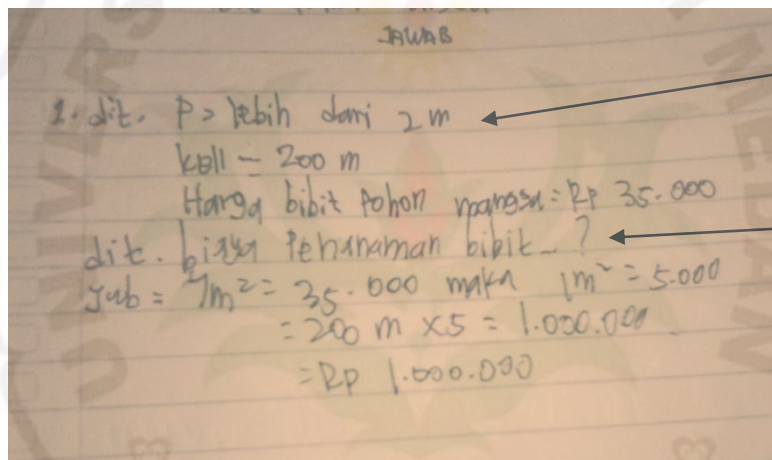 JAWAB
1. dit. P > lebih dari 2 m
kell = 200 m
Harga bibit Pohon mangga = Rp 35.000
dit. biaya Penanaman bibit ... ?
Jwb = 7m² = 35.000 maka 1m² = 5.000
= 200 m x5 = 1.000.000
= Rp 1.000.000
UNIVERS
MEDAN